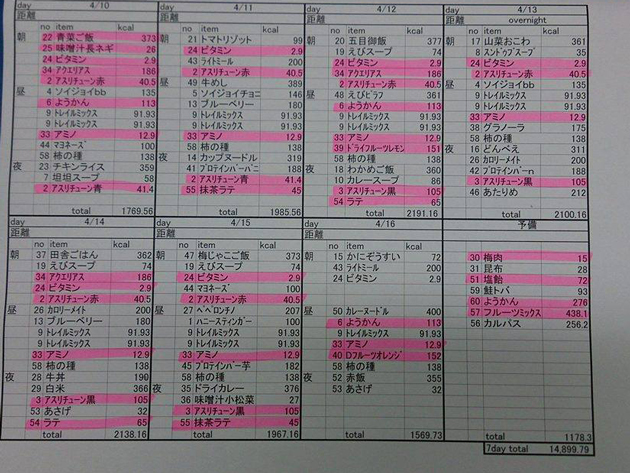 day 4/10
距離
no item kcal
朝 22 青菜ご飯 373
25 味噌汁長ネギ 26
24 ビタミン 2.9
34 アクエリアス 186
2 アスリチューン赤 40.5
昼 4 ソイジョイbb 135
6 ようかん 113
9 トレイルミックス 91.93
9 トレイルミックス 91.93
33 アミノ 12.9
44 マヨネーズ 100
58 柿の種 138
夜 23 チキンライス 359
7 坦坦スープ 58
2 アスリチューン青 41.4
total 1769.56
day 4/11
距離
no item kcal
朝 21 トマトリゾット 99
24 ビタミン 2.9
43 ライトミール 200
2 アスリチューン赤 40.5
昼 49 牛めし 389
5 ソイジョイチョコ 146
13 ブルーベリー 180
9 トレイルミックス 91.93
9 トレイルミックス 91.93
33 アミノ 12.9
58 柿の種 138
夜 14 カップヌードル 319
41 プロテインバーバニ 188
2 アスリチューン青 41.4
55 抹茶ラテ 45
total 1985.56
day 4/12
距離
no item kcal
朝 20 五目御飯 377
19 えびスープ 74
24 ビタミン 2.9
2 アスリチューン赤 40.5
昼 48 えびピラフ 361
6 ようかん 113
9 トレイルミックス 91.93
9 トレイルミックス 91.93
33 アミノ 12.9
39 ドライフルーツレモン 151
58 柿の種 138
夜 18 わかめご飯 360
10 カレースープ 86
3 アスリチューン黒 105
54 ラテ 65
total 2191.16
day 4/13
距離 overnight
no item kcal
朝 17 山菜おこわ 361
24 ビタミン 2.9
2 アスリチューン赤 40.5
昼 4 ソイジョイbb 135
9 トレイルミックス 91.93
9 トレイルミックス 91.93
33 アミノ 12.9
38 グラノーラ 175
58 柿の種 138
夜 16 どんべえ
26 カロリーメイト 200
42 プロテインバーn 188
3 アスリチューン黒 105
46 あたりめ 212
total 2100.16
day 4/14
距離
no item kcal
朝 37 田舎ごはん 362
19 えびスープ 74
34 アクエリアス 186
24 ビタミン 2.9
2 アスリチューン赤 40.5
昼 26 カロリーメイト 200
13 ブルーベリー 180
9 トレイルミックス 91.93
9 トレイルミックス 91.93
33 アミノ 12.9
58 柿の種 138
夜 28 牛丼 190
29 白米 366
3 アスリチューン黒 105
53 あさげ 32
54 ラテ 65
total 2138.16
day 4/15
距離
no item kcal
朝 47 梅じゃこご飯 373
19 えびスープ 74
24 ビタミン 2.9
44 マヨネーズ 100
2 アスリチューン赤 40.5
昼 27 ペペロンチノ 207
1 ハニースティンガー 100
9 トレイルミックス 91.93
9 トレイルミックス 91.93
33 アミノ 12.9
45 プロテインバー芋 182
58 柿の種 138
夜 35 ドライカレー 376
36 味噌汁小松菜 27
3 アスリチューン黒 105
55 抹茶ラテ 45
total 1967.16
day 4/16
距離
no item kcal
朝 15 かにぞうすい 72
43 ライトミール 200
24 ビタミン 2.9
昼 50 カレーヌードル 400
6 ようかん 113
9 トレイルミックス 91.93
9 トレイルミックス 91.93
33 アミノ 12.9
40 Dフルーツオレンジ 152
58 柿の種 138
夜 52 赤飯 355
53 あさげ 32
total 1569.73
予備
30 梅肉 15
31 昆布 28
51 塩飴 72
59 鮭トバ 93
60 ようかん 276
57 フルーツミックス 438.1
56 カルパス 256.2
total 1178.3
7day total 14,899.79